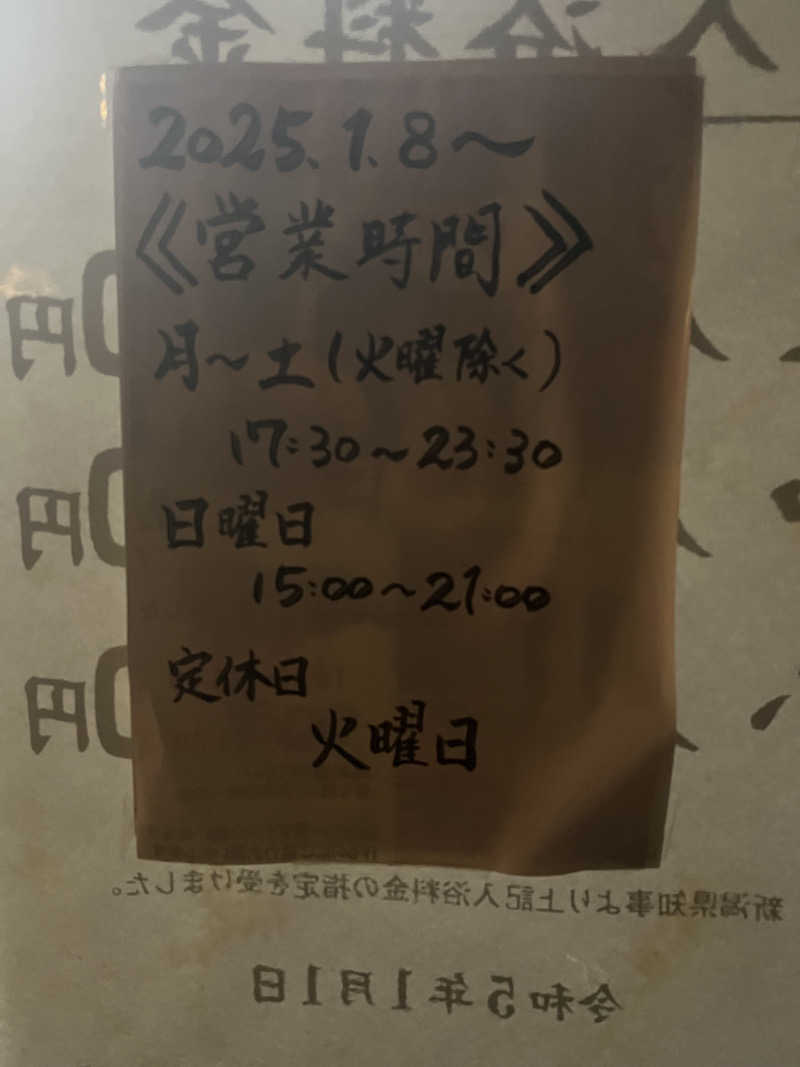 入浴料金
2025.1.8〜
《営業時間》
月〜土(火曜除く)
17:30〜23:30
日曜日
15:00〜21:00
定休日
火曜日
円
円
円
新潟県知事より上記入浴料金の指定を受けました。
令和5年1月1日